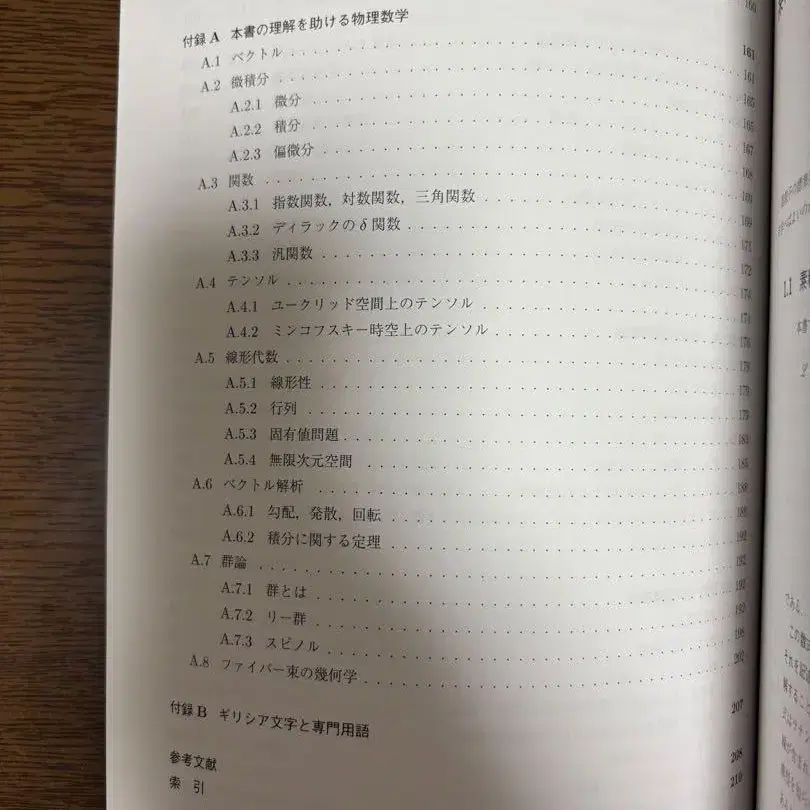 160
付録 A 本書の理解を助ける物理数学 161
A.1 ベクトル 161
A.2 微積分 165
A.2.1 微分 165
A.2.2 積分 167
A.2.3 偏微分 168
A.3 関数 169
A.3.1 指数関数, 対数関数, 三角関数 169
A.3.2 ディラックの δ 関数 171
A.3.3 汎関数 172
A.4 テンソル 174
A.4.1 ユークリッド空間上のテンソル 174
A.4.2 ミンコフスキー時空上のテンソル 176
A.5 線形代数
A.5.1 線形性 179
A.5.2 行列 179
A.5.3 固有値問題 183
A.5.4 無限次元空間 185
A.6 ベクトル解析 188
A.6.1 勾配, 発散, 回転 189
A.6.2 積分に関する定理 192
A.7 群論 192
A.7.1 群とは 193
A.7.2 リー群 193
A.7.3 スピノル 198
A.8 ファイバー束の幾何学 202
付録 B ギリシア文字と専門用語 207
参考文献 208
索 引 210
1.1 素
である.
この数
解すること